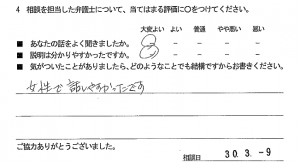 4 相談を担当した弁護士について、当てはまる評価に○をつけてください。
大変よい よい 普通 やや悪い 悪い
■ あなたの話をよく聞きましたか。
■ 説明は分かりやすかったですか。
■ 気がついたことがありましたら、どのようなことでも結構ですからお書きください。
女性で話しやすかったです
ご協力ありがとうございました。
相談日 30.3.-9